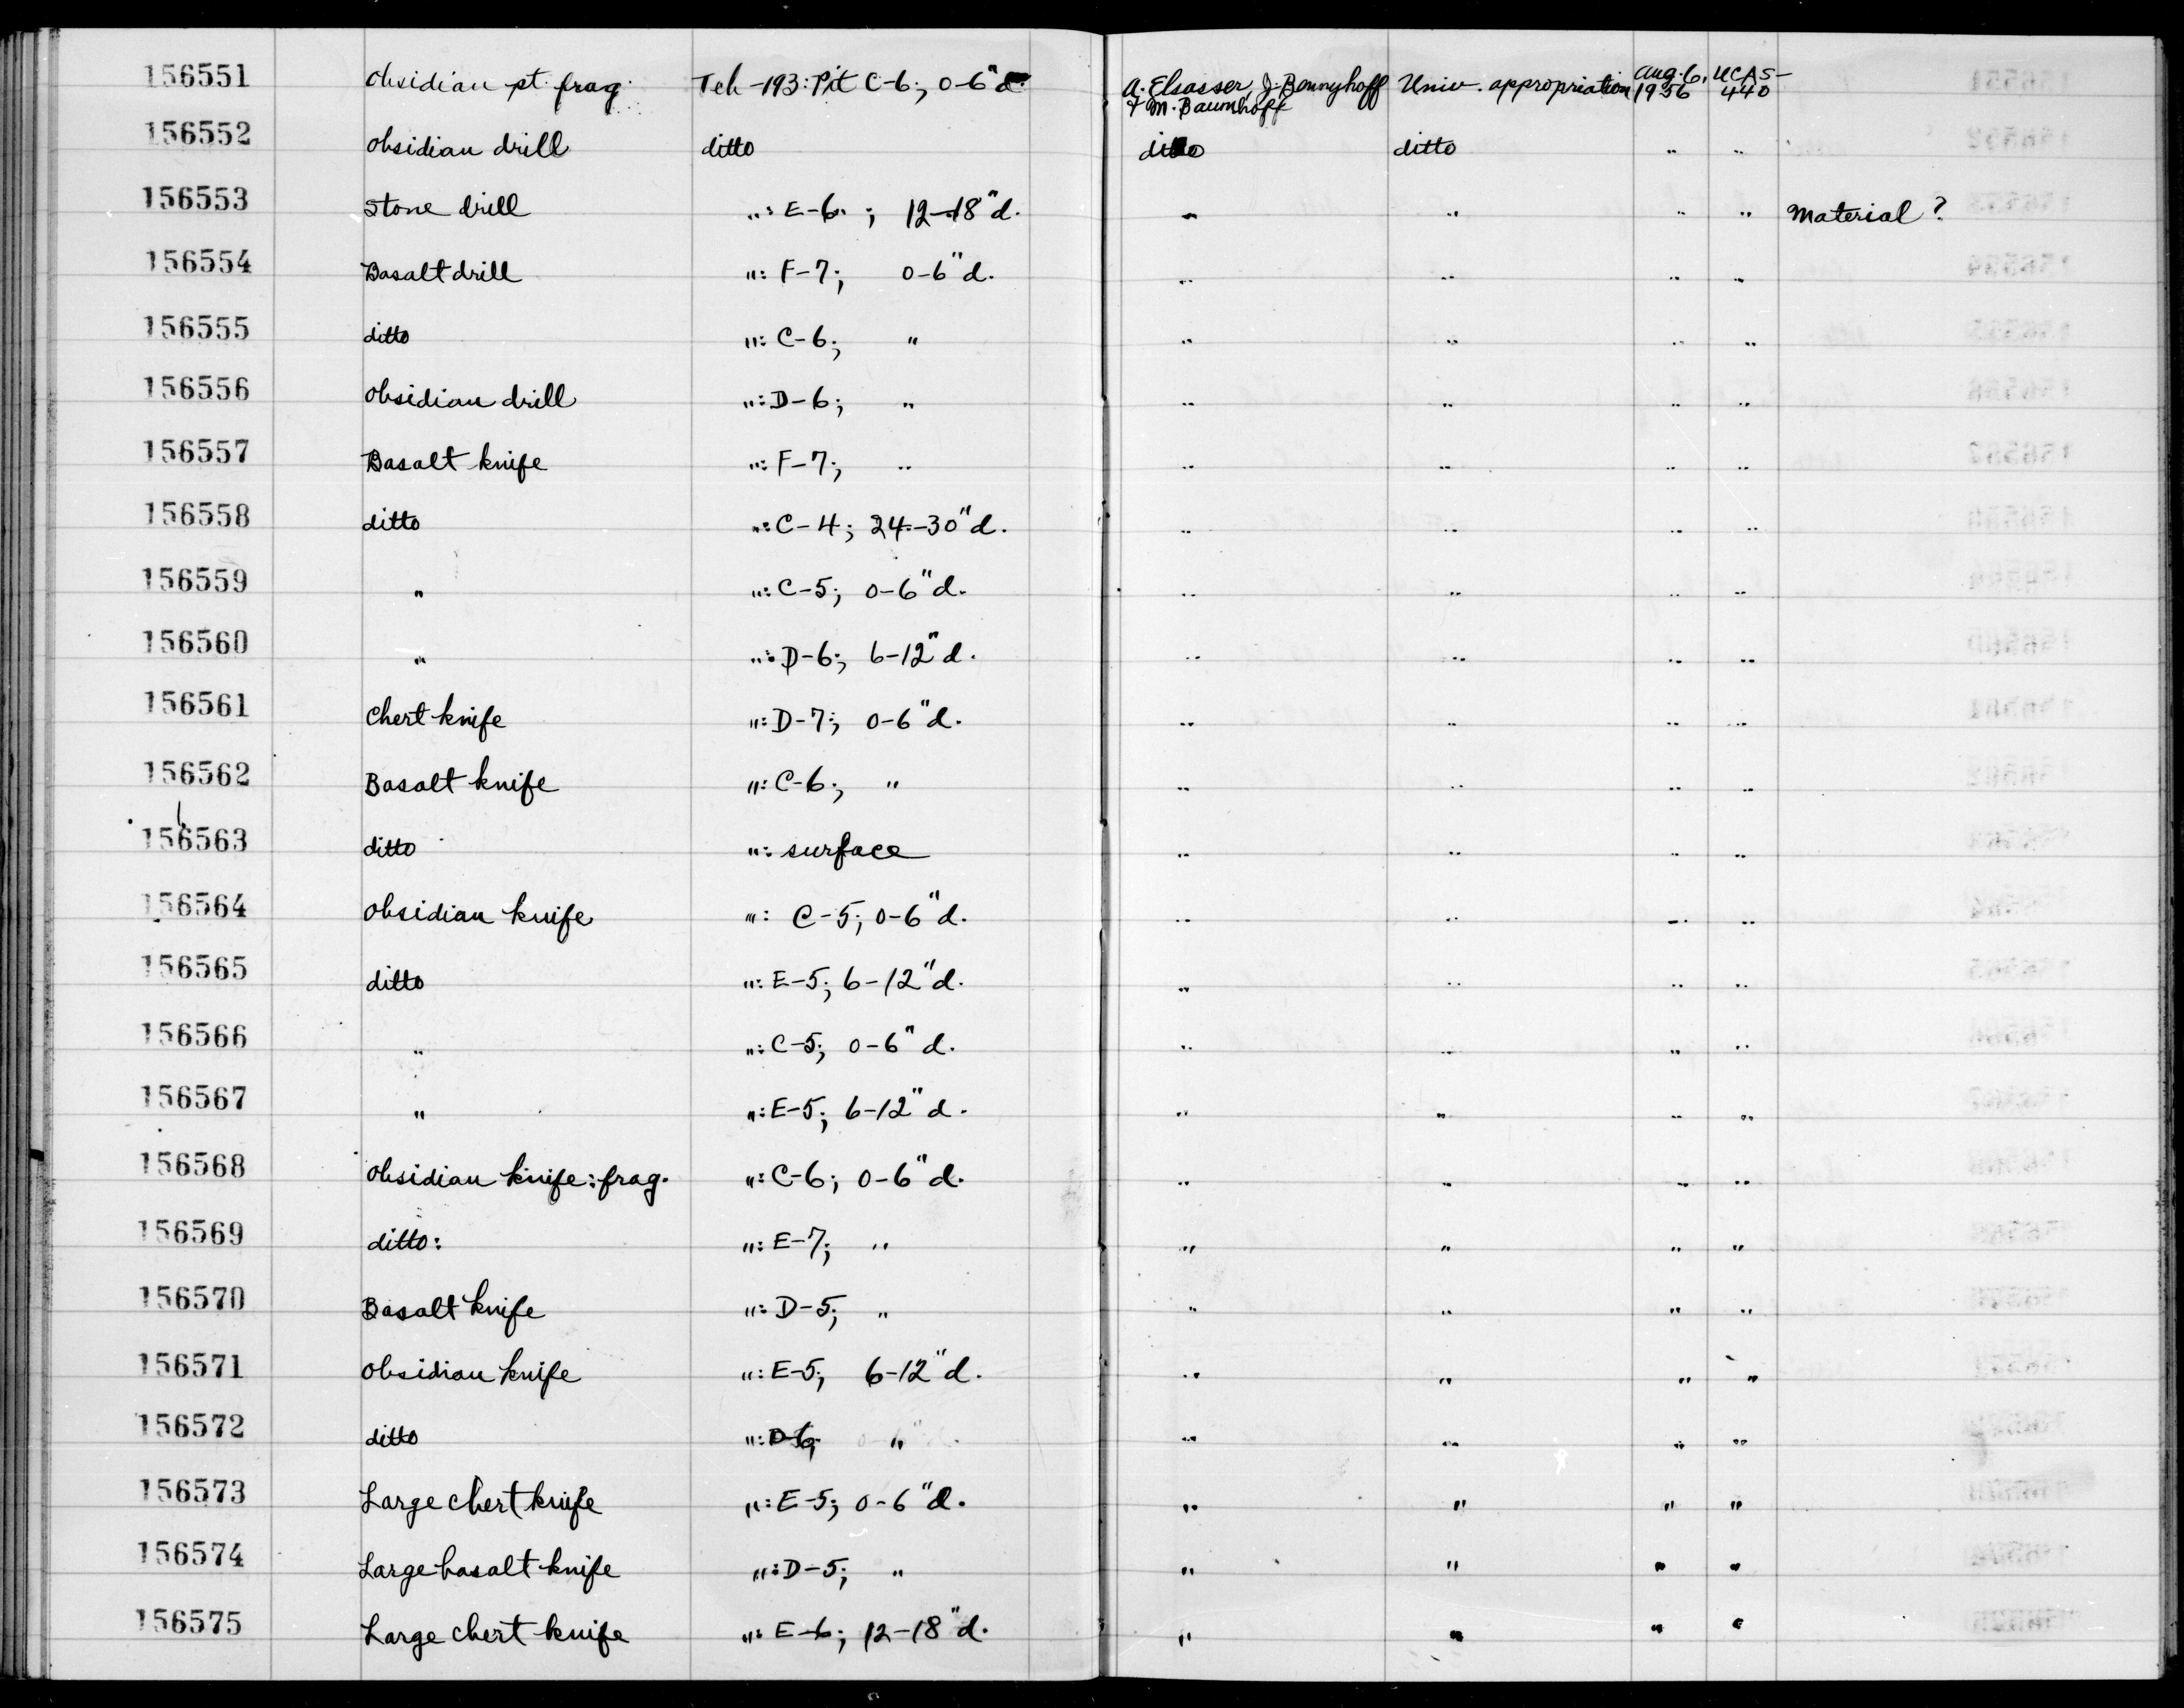 156551 Obsidian pt. frag. Teh-193: Pit C-6; 0-6"d. A. Elsasser, J. Bennyhoff Univ. appropriation Aug. 6, UCAS-
& M. Baumhoff 1956 440
156552 Obsidian drill ditto ditto ditto " "
156553 Stone drill ": E-6 ; 12-18"d. " " " " Material?
156554 Basalt drill ": F-7; 0-6"d. " " " "
156555 ditto ": C-6; " " " " "
156556 Obsidian drill ": D-6; " " " " "
156557 Basalt knife ": F-7; " " " " "
156558 ditto ": C-4; 24-30"d. " " " "
156559 " ": C-5; 0-6"d. " " " "
156560 " ": D-6; 6-12"d. " " " "
156561 Chert knife ": D-7; 0-6"d. " " " "
156562 Basalt knife ": C-6; " " " " "
156563 ditto ": surface " " " "
156564 Obsidian knife ": C-5; 0-6"d. " " " "
156565 ditto ": E-5; 6-12"d. " " " "
156566 " ": C-5; 0-6"d. " " " "
156567 " ": E-5; 6-12"d. " " " "
156568 Obsidian knife: frag. ": C-6; 0-6"d. " " " "
156569 ditto: ": E-7; " " " " "
156570 Basalt knife ": D-5; " " " " "
156571 Obsidian knife ": E-5; 6-12"d. " " " "
156572 ditto ": D-6; " " " " "
156573 Large chert knife ": E-5; 0-6"d. " " " "
156574 Large basalt knife ": D-5; " " " " "
156575 Large chert knife ": E-6; 12-18"d. " " " "